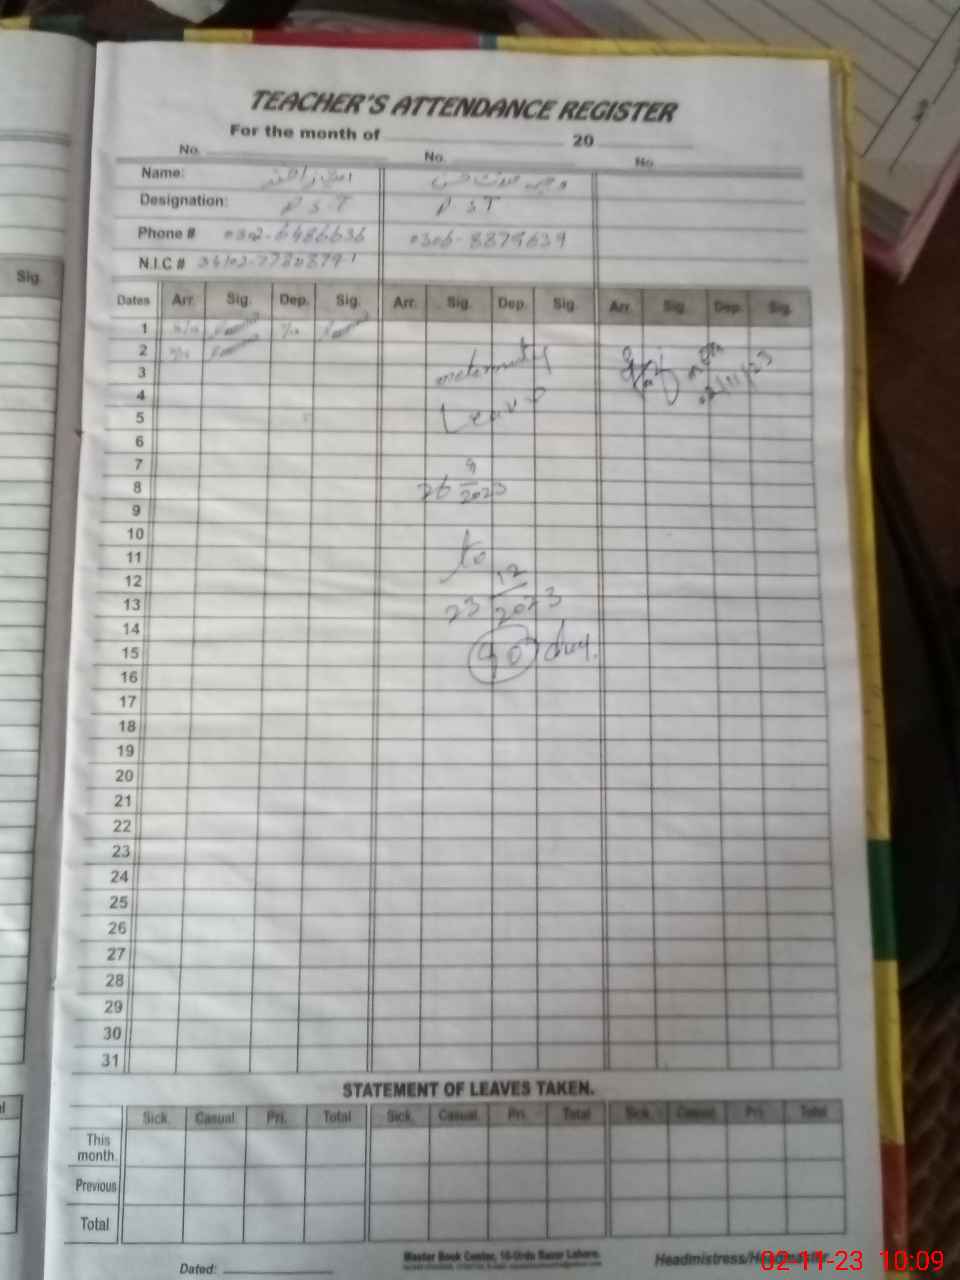 TEACHER'S ATTENDANCE REGISTER
For the month of 20
No. No. No.
Name:
Designation: P S T P S T
Phone # 0302-6486636 0306-8879639
N.I.C #
Sig.
Dates Arr. Sig. Dep. Sig. Arr. Sig. Dep. Sig. Arr. Sig. Dep. Sig.
1
2
3 maternity
4 Leave
5
6
7 9
8 26 2023
9
10
11 to
12 12
13 23 2023
14
15 90 day.
16
17
18
19
20
21
22
23
24
25
26
27
28
29
30
31
02/11/23
STATEMENT OF LEAVES TAKEN.
Sick. Casual Pri. Total Sick. Casual. Pri. Total Sick. Casual. Pri. Total
This month.
Previous
Total
Dated:
Master Book Center, 10-Urdu Bazar Lahore.
Headmistress/Headmaster
02-11-23 10:09